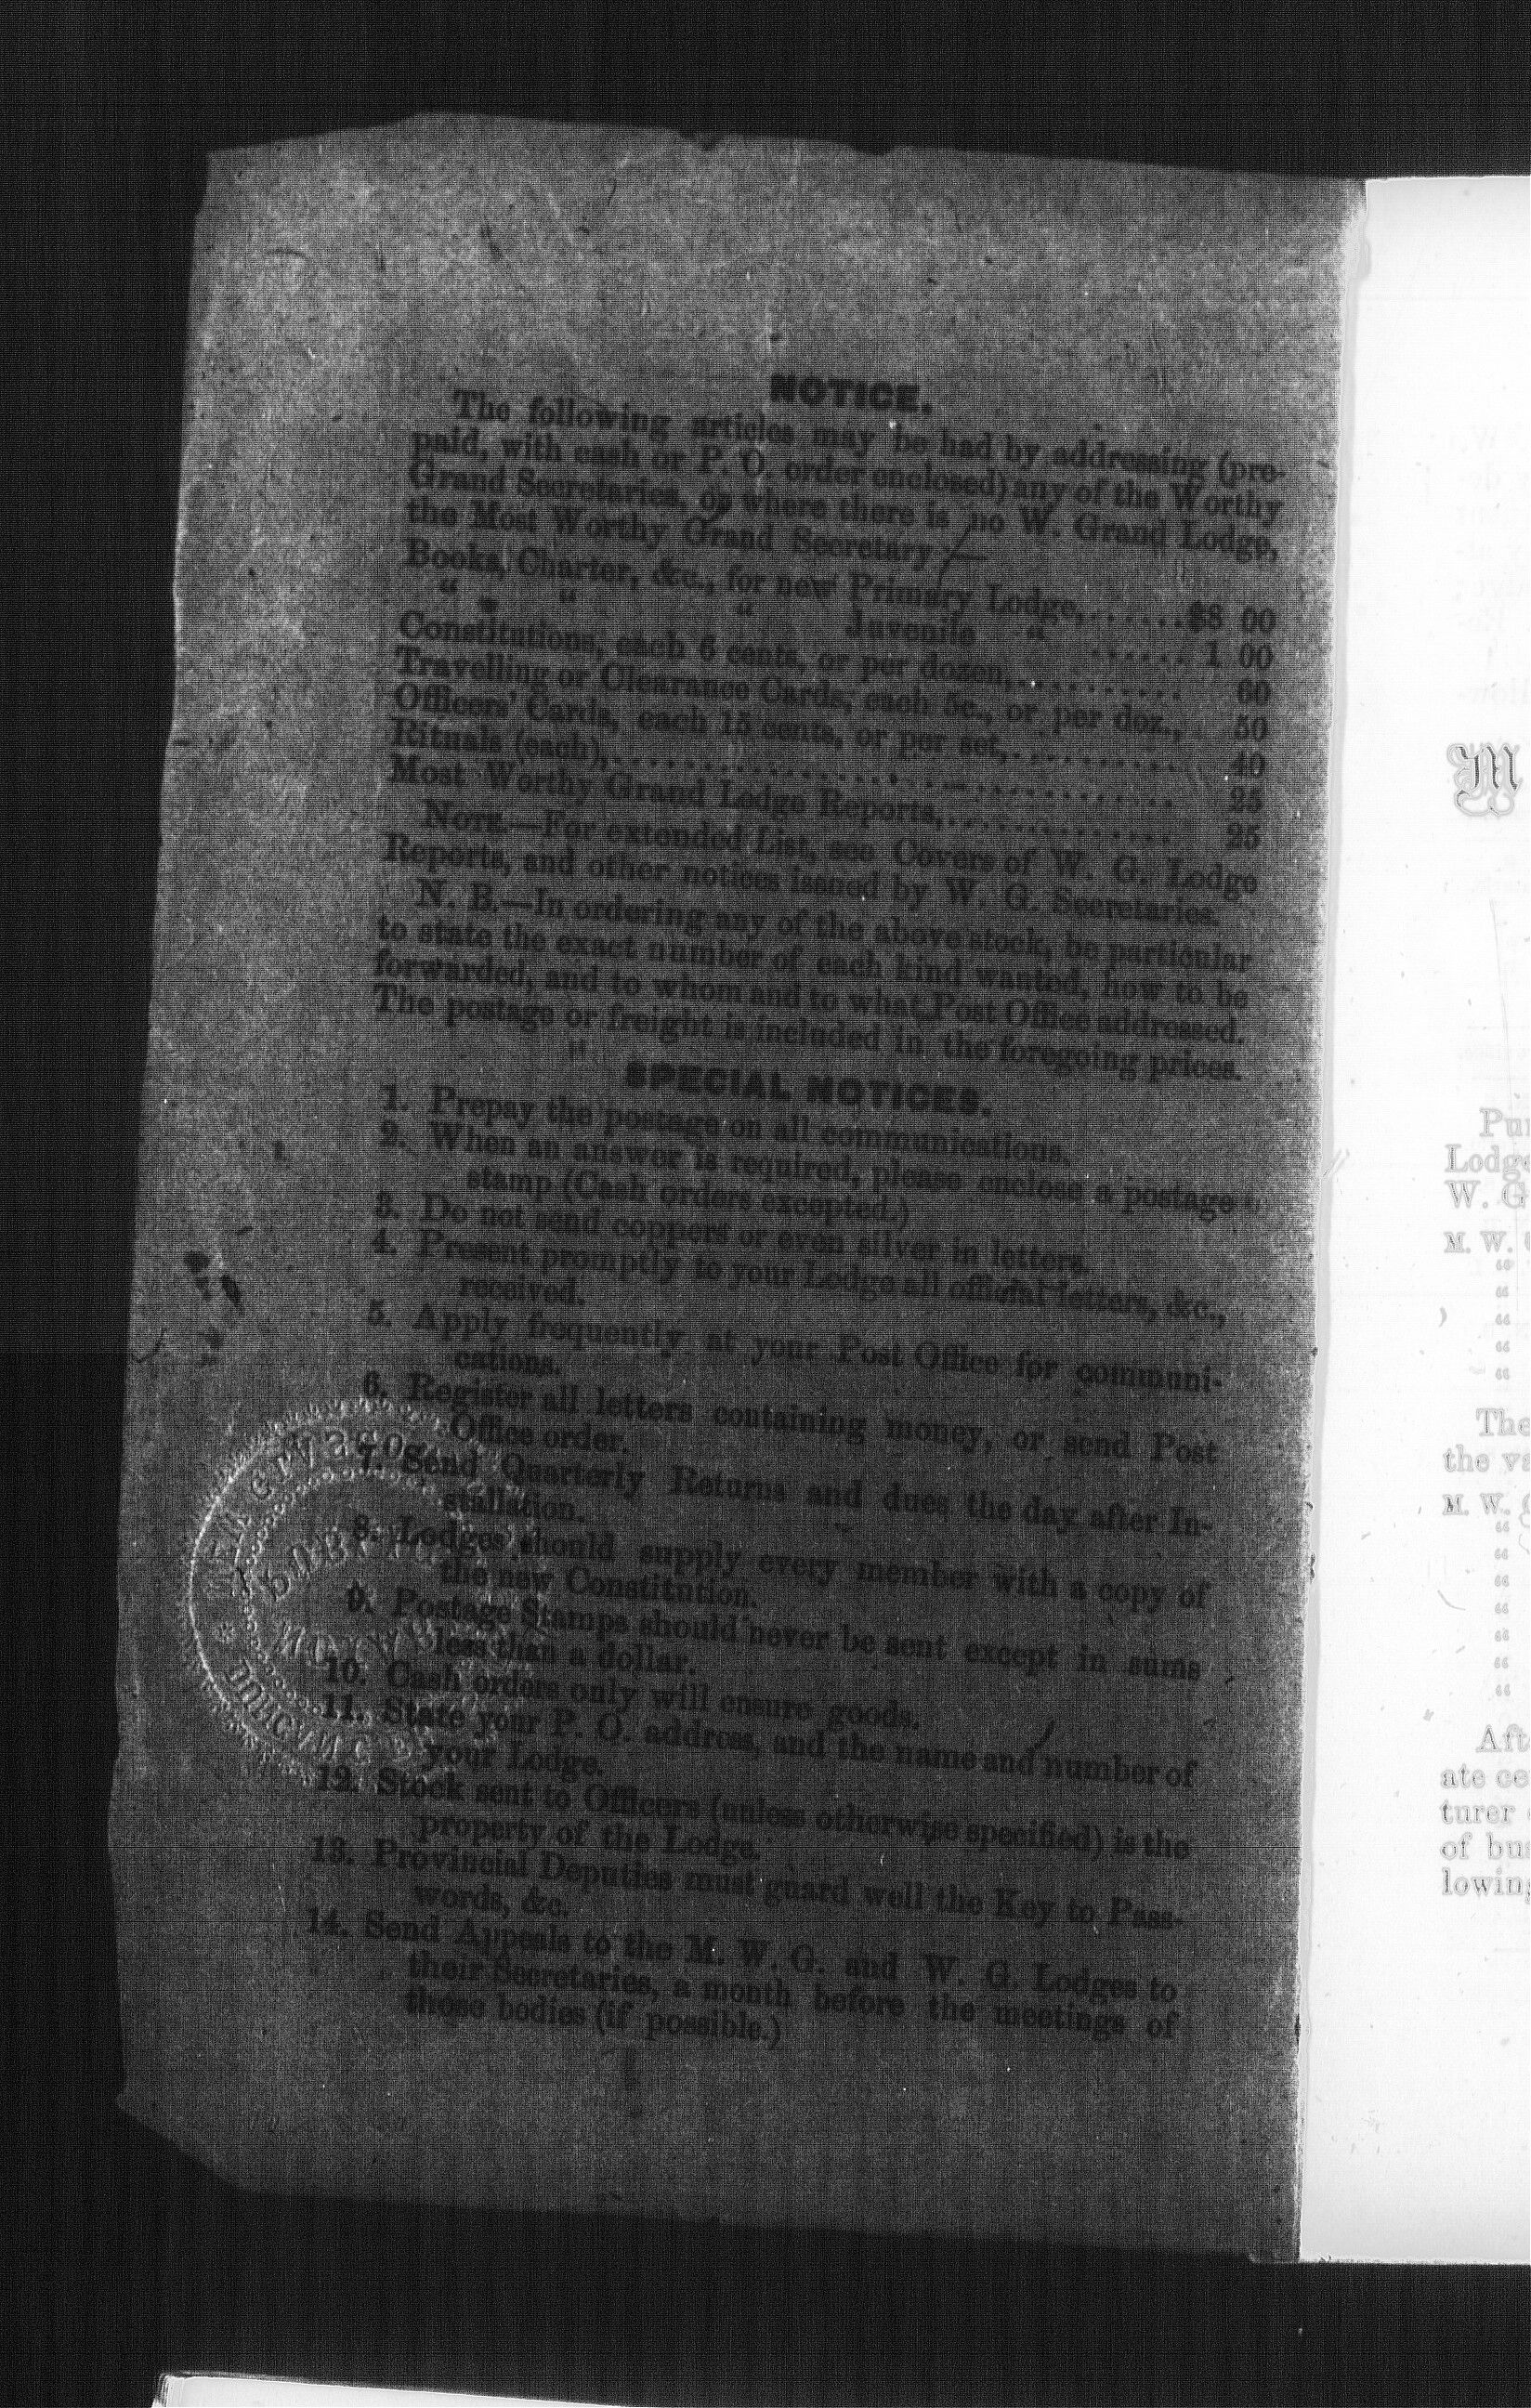 NOTICE.
The following articles may be had by addressing (pre-
paid, with cash or P. O. order enclosed) any of the Worthy
Grand Secretaries, or where there is no W. Grand Lodge,
the Most Worthy Grand Secretary
Books, Charter, &c., for new Primary Lodge,......$8 00
“ “ “ Juvenile “ ...... 1 00
Constitutions, each 6 cents, or per dozen,........... 60
Travelling or Clearance Cards, each 5c., or per doz., 50
Officers' Cards, each 15 cents, or per set,........... 40
Rituals (each),.................................... 25
Most Worthy Grand Lodge Reports,............... 25
NOTE.—For extended List, see Covers of W. G. Lodge
Reports, and other notices issued by W. G. Secretaries.
N. B.—In ordering any of the above stock, be particular
to state the exact number of each kind wanted, how to be
forwarded, and to whom and to what Post Office addressed.
The postage or freight is included in the foregoing prices.
SPECIAL NOTICES.
1. Prepay the postage on all communications.
2. When an answer is required, please enclose a postage
stamp (Cash orders excepted.)
3. Do not send coppers or even silver in letters.
4. Present promptly to your Lodge all official letters, &c.,
received.
5. Apply frequently at your Post Office for communi-
cations.
6. Register all letters containing money, or send Post
Office order.
7. Send Quarterly Returns and dues the day after In-
stallation.
8. Lodges should supply every member with a copy of
the new Constitution.
9. Postage Stamps should never be sent except in sums
less than a dollar.
10. Cash orders only will ensure goods.
11. State your P. O. address, and the name and number of
your Lodge.
12. Stock sent to Officers (unless otherwise specified) is the
property of the Lodge.
13. Provincial Deputies must guard well the Key to Pass-
words, &c.
14. Send Appeals to the M. W. G. and W. G. Lodges to
their Secretaries, a month before the meetings of
those bodies (if possible.)
M
Lodge
W. G
M. W.
“
“
“
“
“
The
the
M. W.
“
“
“
“
“
“
“
ate
turer
of